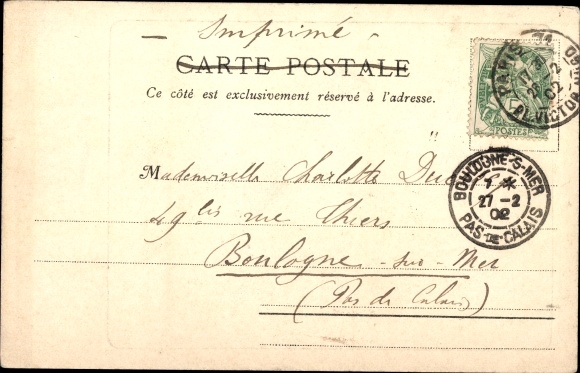 — Imprimé -
CARTE POSTALE
Ce côté est exclusivement réservé à l'adresse.
POSTES
PARIS
02
Mademoiselle Charlotte
49 bis rue Thiers
Boulogne-sur-Mer
(Pas de Calais)
BOULOGNE-S-MER
7 *
27-2
02
PAS-DE-CALAIS